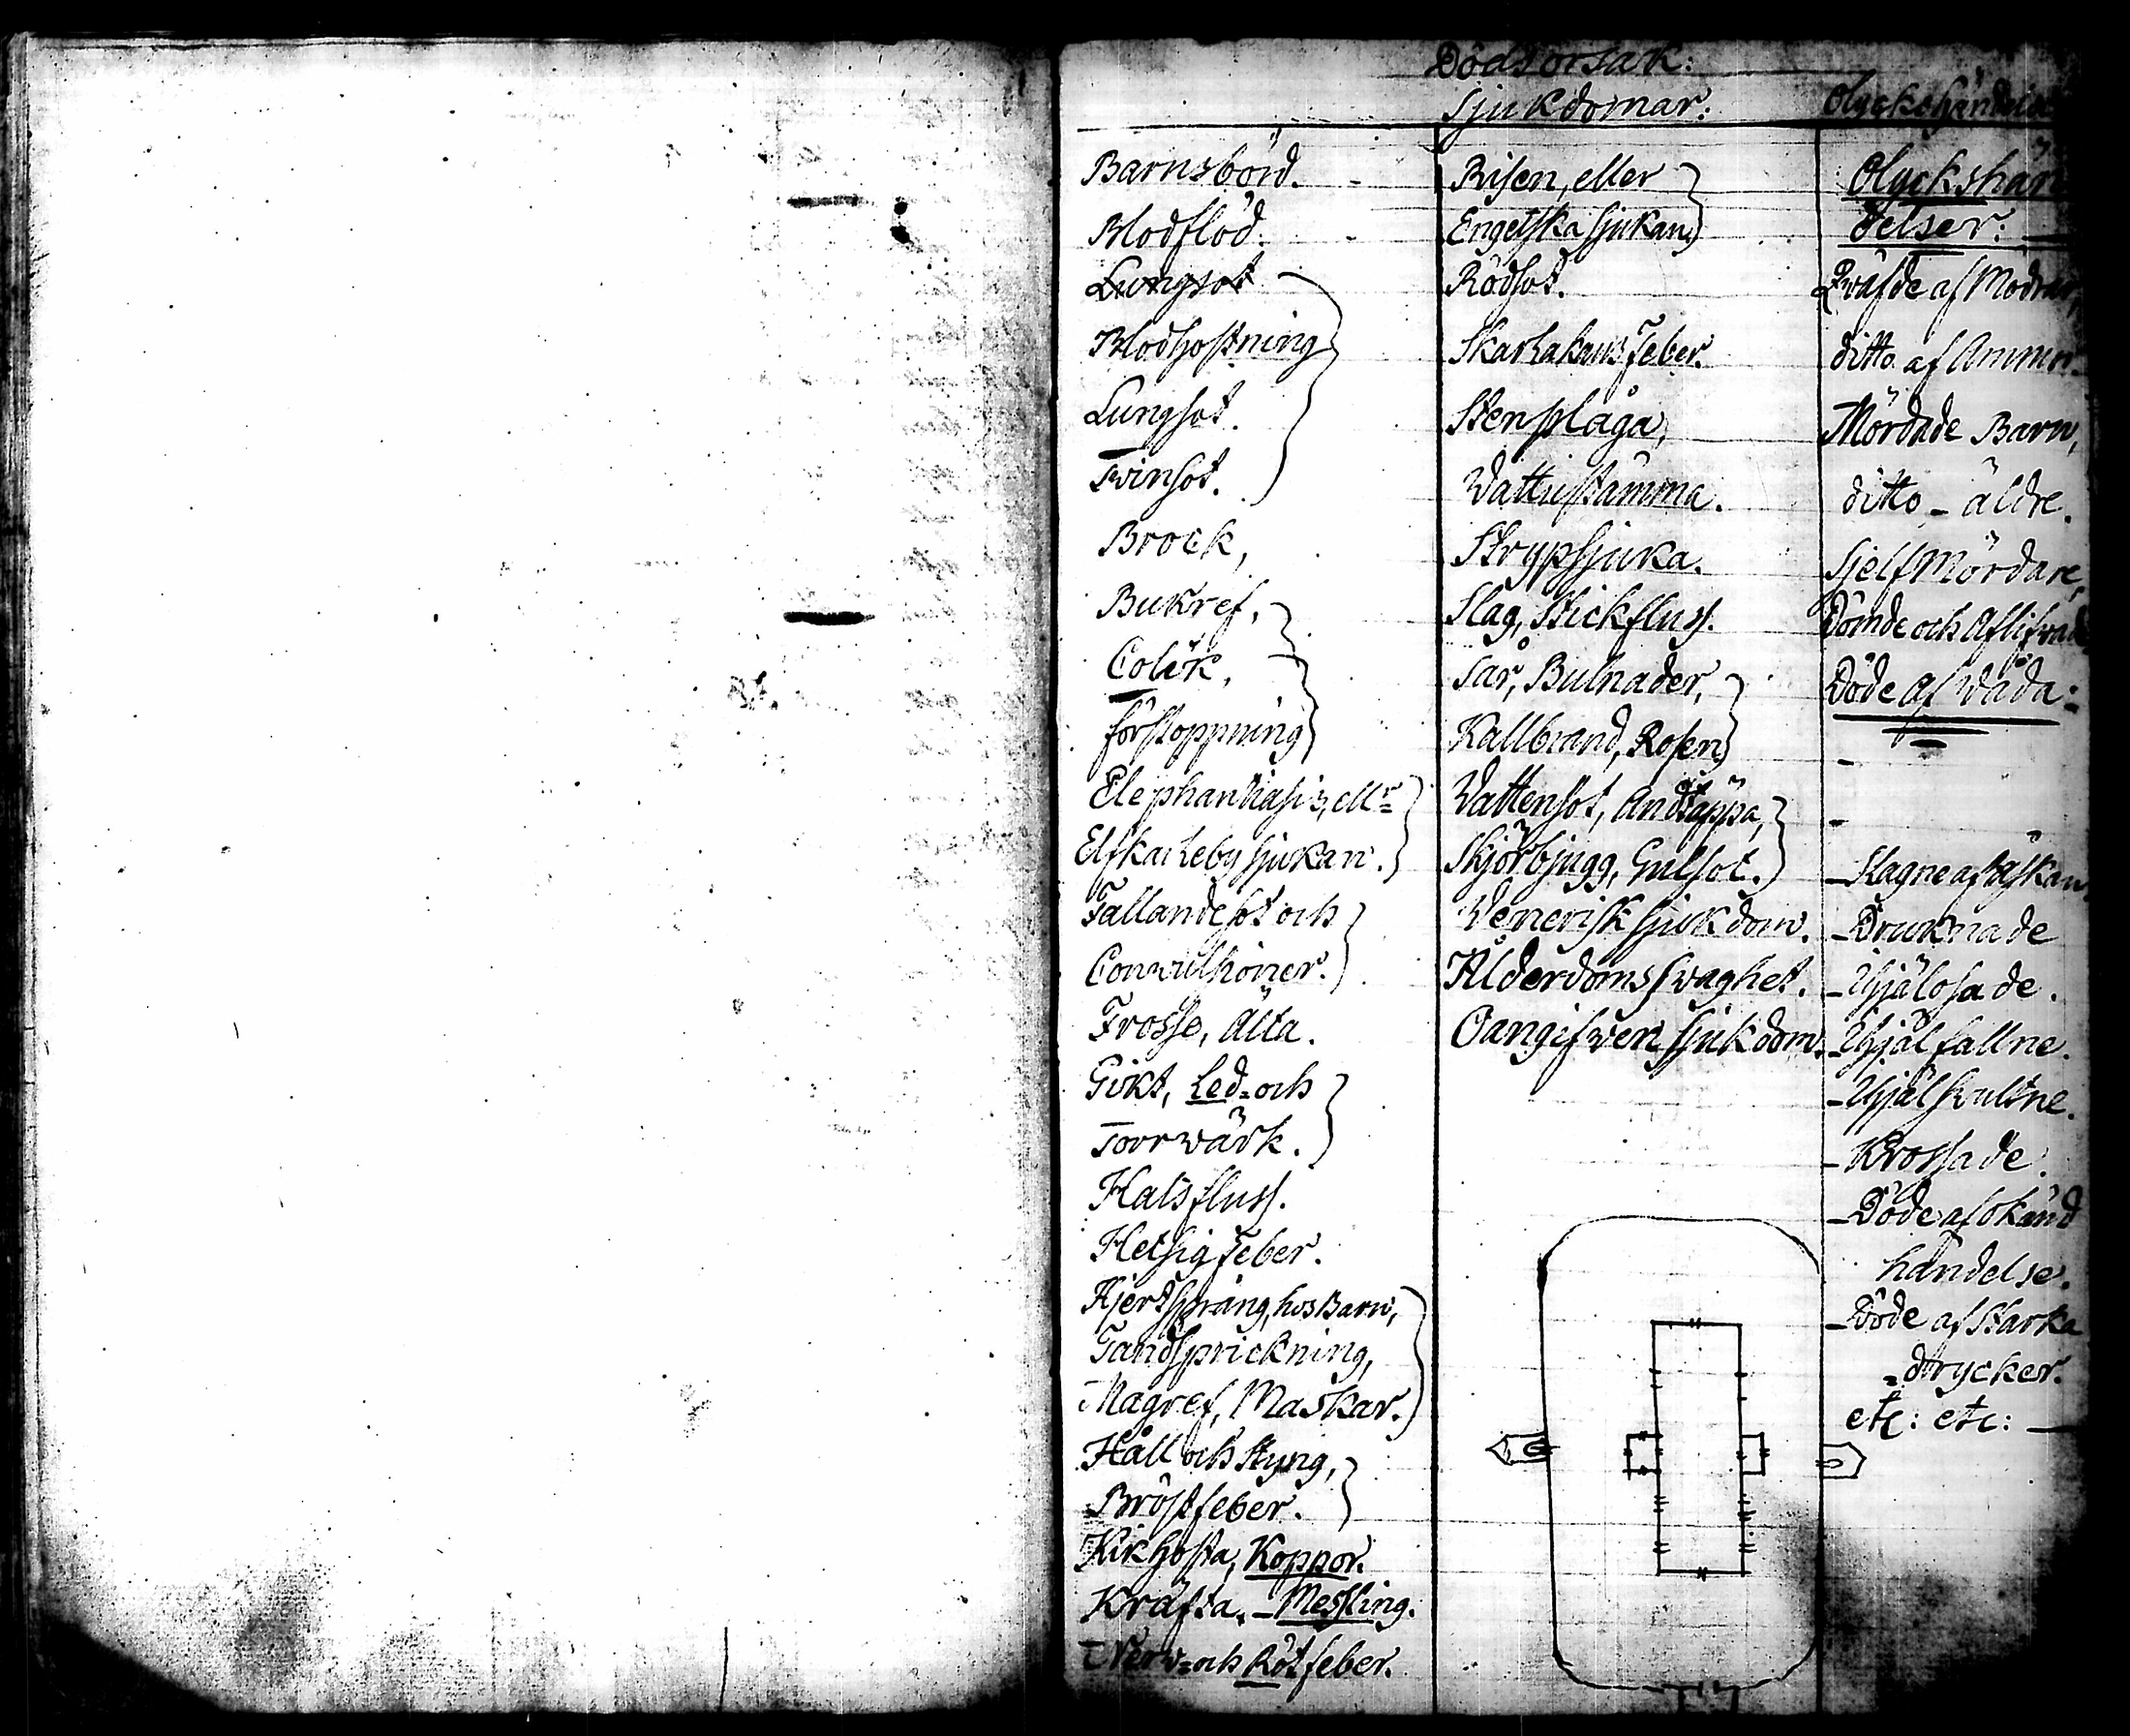 Dödsorsak:
Sjukdomar:
Olyckshändelser
Barnsbörd.
Blodflöd.
Lungsot
Blodhostning
Lungsot.
Tvinsot.
Brock,
Bukref,
Colik,
förstoppning
Elephantiasis, ellr
Elfkarleby sjukan.
Fallandesot och
Convulsioner.
Frossa, Älta.
Gikt, Led= och
Torrwärk.
Halsfluss.
Hetsig feber.
Hjertsprång, hos Barn,
Tandsprickning,
Magref, Maskar.
Håll och Styng,
Bröstfeber.
Kikhosta, Koppor.
Kräfta. – Messling.
Nerv= och Rötfeber.
Risen, eller
Engelska sjukan.
Rödsot.
Skarlakans feber.
Stenplåga,
Wattustämma.
Strypsjuka.
Slag, Stickfluss.
Sår, Bulnader,
Kallbrand, Rosen.
Wattensot, Andtäppa,
Skjörbjugg, Gulsot.
Wenerisk sjukdom.
Ålderdoms swaghet.
Oangifwen sjukdom.
Olyckshän
delser:
Qväfde af Modrar,
ditto af Ammor.
Mördade Barn,
ditto – äldre.
Sjelfmördare,
Dömde och Aflifwade
Döde af Wåda:
– Slagne af åskan
– Druknade
– Ihjälosade.
– Ihjälfallne.
– Ihjälsvultne.
– Krossade.
– Döde af okänd
händelse.
– Döde af starka
= drycker.
etc: etc: –